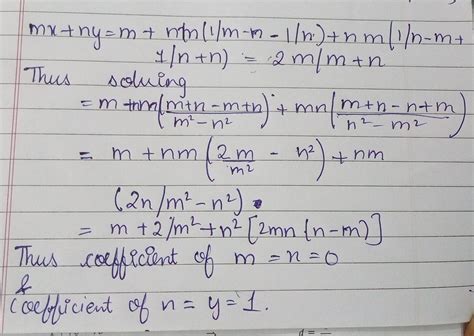 mx+ny=m+ nm(1/m-n - 1/n)+nm(1/n-m+
1/n+n) = 2m/m+n
Thus solving
= m+nm(m+n-m+n/m²-n²) + mn(m+n-n+m/n²-m²)
= m + nm (2m/m² - n²) + nm
(2n/m²-n²).
= m+2/m²+n² [2mn{n-m)]
Thus coefficient of m = n = 0
&
coefficient of n = y = 1.